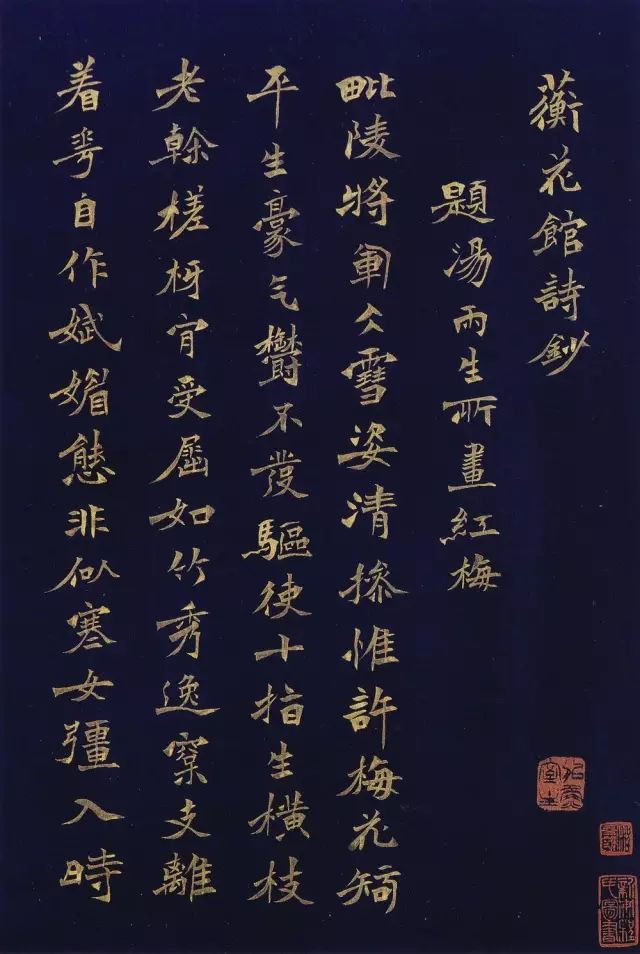 蘅花館詩鈔
題湯雨生所畫紅梅
毗陵將軍仌雪姿清摻惟許梅花知
平生豪气鬱不發驅使十指生橫枝
老榦槎枒肎受屈如竹秀逸窠支離
着華自作娬媚態非似寒女彊入時